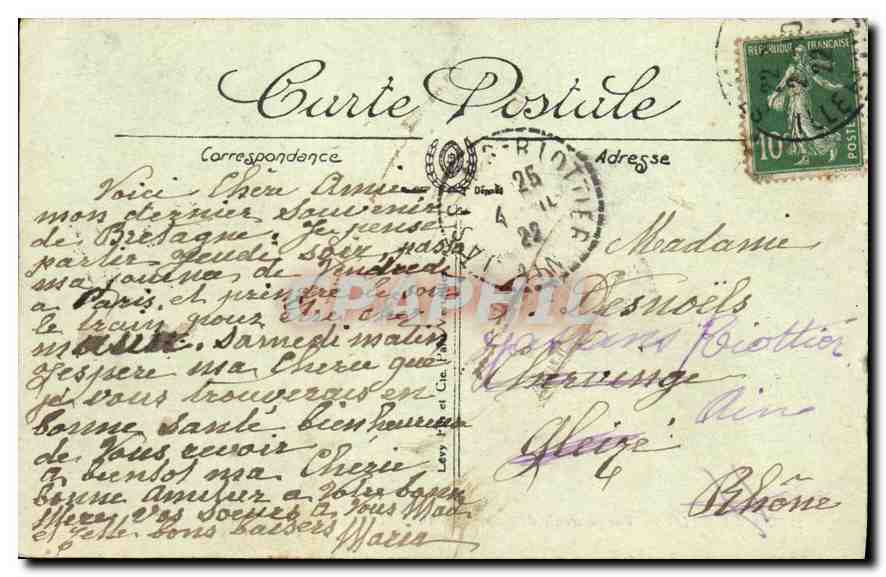 Carte Postale
Correspondance
Adresse
REPUBLIQUE FRANÇAISE
10
POSTES
LILLE
22
JASSANS-RIOTTIER
AIN
25
4
22
Voici Chère Amie
mon dernier souvenir
de Bretagne. Je pense
partir jeudi soir pass
ma journé de Vendredi
a Paris et prendre le soir
le train pour être chez
Samedi matin
J'espère ma Cherie que
je vous trouverais en
bonne santé bien heureuse
de Vous revoir
a bientot ma Chérie
bonne Amitiez a Votre bonne
Mere Vos soeurs a Vous Mad
et Jette bons baisers
Maria
Lévy Fils et Cie, Paris
Madame
Desnoëls
Jassans Riottier
Chervinge
Ain
Gleizé
Rhône
CPAPHIL